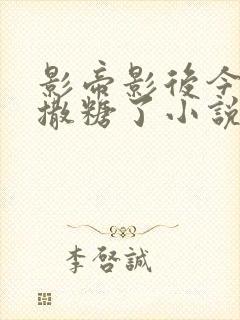 影帝影後今
撒糖了小說
李啓誠